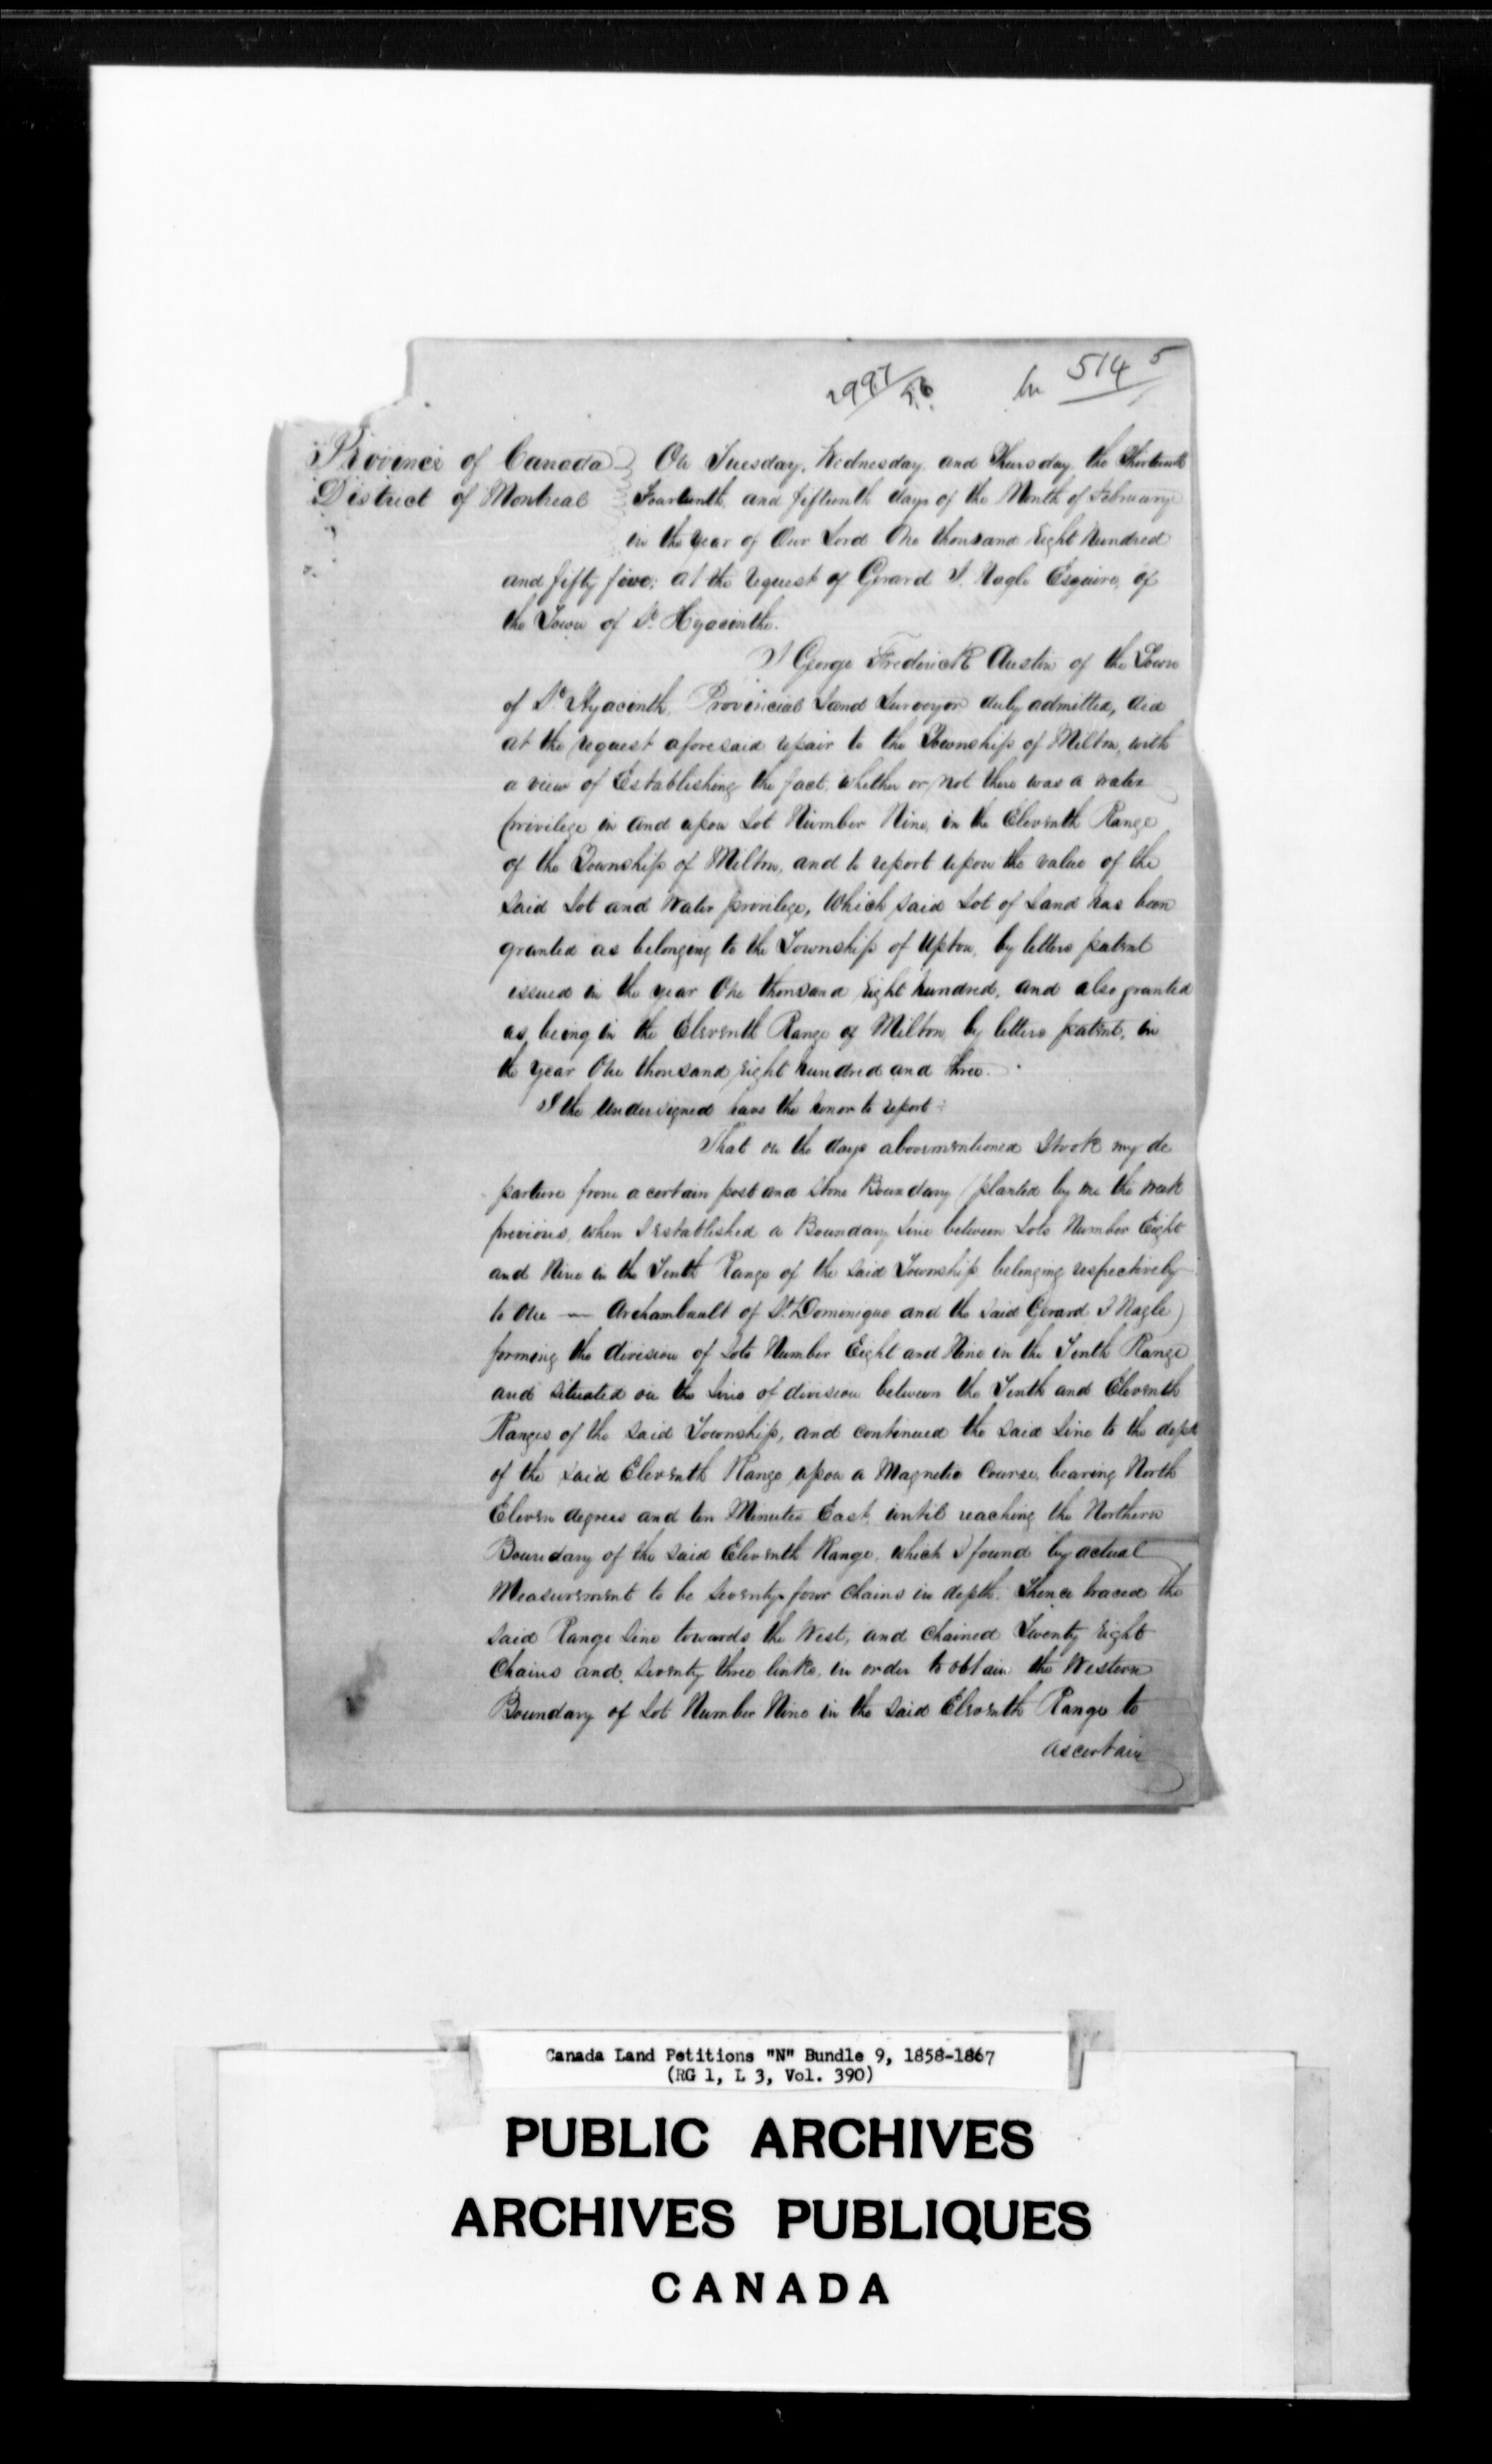 2997/56. In 514 5
Province of Canada } On Tuesday, Wednesday and Thursday the Thirteenth
District of Montreal } Fourteenth, and fifteenth days of the Month of February
in the year of Our Lord One thousand Eight hundred
and fifty five; at the request of Gerard J. Nagle Esquire, of
the Town of St. Hyacinthe.
I George Frederick Austin of the Town
of St. Hyacinth, Provincial Land Surveyor duly admitted, did
at the request aforesaid repair to the Township of Milton, with
a view of Establishing the fact, whether or not there was a water
privilege in and upon Lot Number Nine, in the Eleventh Range
of the Township of Milton, and to report upon the value of the
said Lot and Water privilege, Which said Lot of Land has been
granted as belonging to the Township of Upton, by letters patent
issued in the year One thousand Eight hundred, and also granted
as being in the Eleventh Range of Milton, by letters patent, in
the year One thousand Eight hundred and three.
I the Undersigned have the honor to report:
That on the days abovementioned I took my de
parture from a certain post and stone Boundary (planted by me the week
previous, when I established a Boundary line between Lots Number Eight
and Nine in the Tenth Range of the said Township belonging respectively
to One — Archambault of St. Dominique and the said Gerard J Nagle)
forming the division of Lots Number Eight and Nine in the Tenth Range
and situated on the Line of division between the Tenth and Eleventh
Ranges of the said Township, and continued the said Line to the depth
of the said Eleventh Range upon a Magnetic Course, bearing North
Eleven degrees and ten Minutes East, until reaching the Northern
Boundary of the said Eleventh Range, which I found by actual
Measurement to be Seventy four Chains in depth. Thence traced the
said Range Line towards the West, and Chained Twenty Eight
Chains and Seventy three links, in order to obtain the Western
Boundary of Lot Number Nine in the said Eleventh Range to
ascertain
Canada Land Petitions "N" Bundle 9, 1858-1867
(RG 1, L 3, Vol. 390)
PUBLIC ARCHIVES
ARCHIVES PUBLIQUES
CANADA